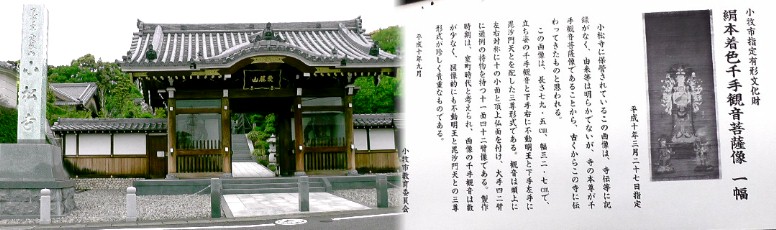 小松寺
愛藤山
小牧市指定有形文化財
絹本着色千手観音菩薩像 一幅
平成十年三月二十七日指定
小松寺に格護されているこの画像は、寺伝等に記
録がなく、由来等は明らかでないが、寺の本尊が千
手観音菩薩像であることから、古くからこの寺に伝
わってきたものと思われる。
この画像は、長さ七九・五㎝、幅三二・七㎝で、
立ち姿の千手観音と下手右に不動明王と下手左手に
毘沙門天とを配した三尊形式である。観音は頭上に
左右対称に十の小面と頂上仏面を付け、大手四二臂
に通例の持物を持つ十一面四十二臂像である。製作
時期は、室町時代と考えられ、画像の千手観音は数
が少なく、図像的にも不動明王と毘沙門天との三尊
形式が珍しく貴重なものである。
平成十年九月
小牧市教育委員会